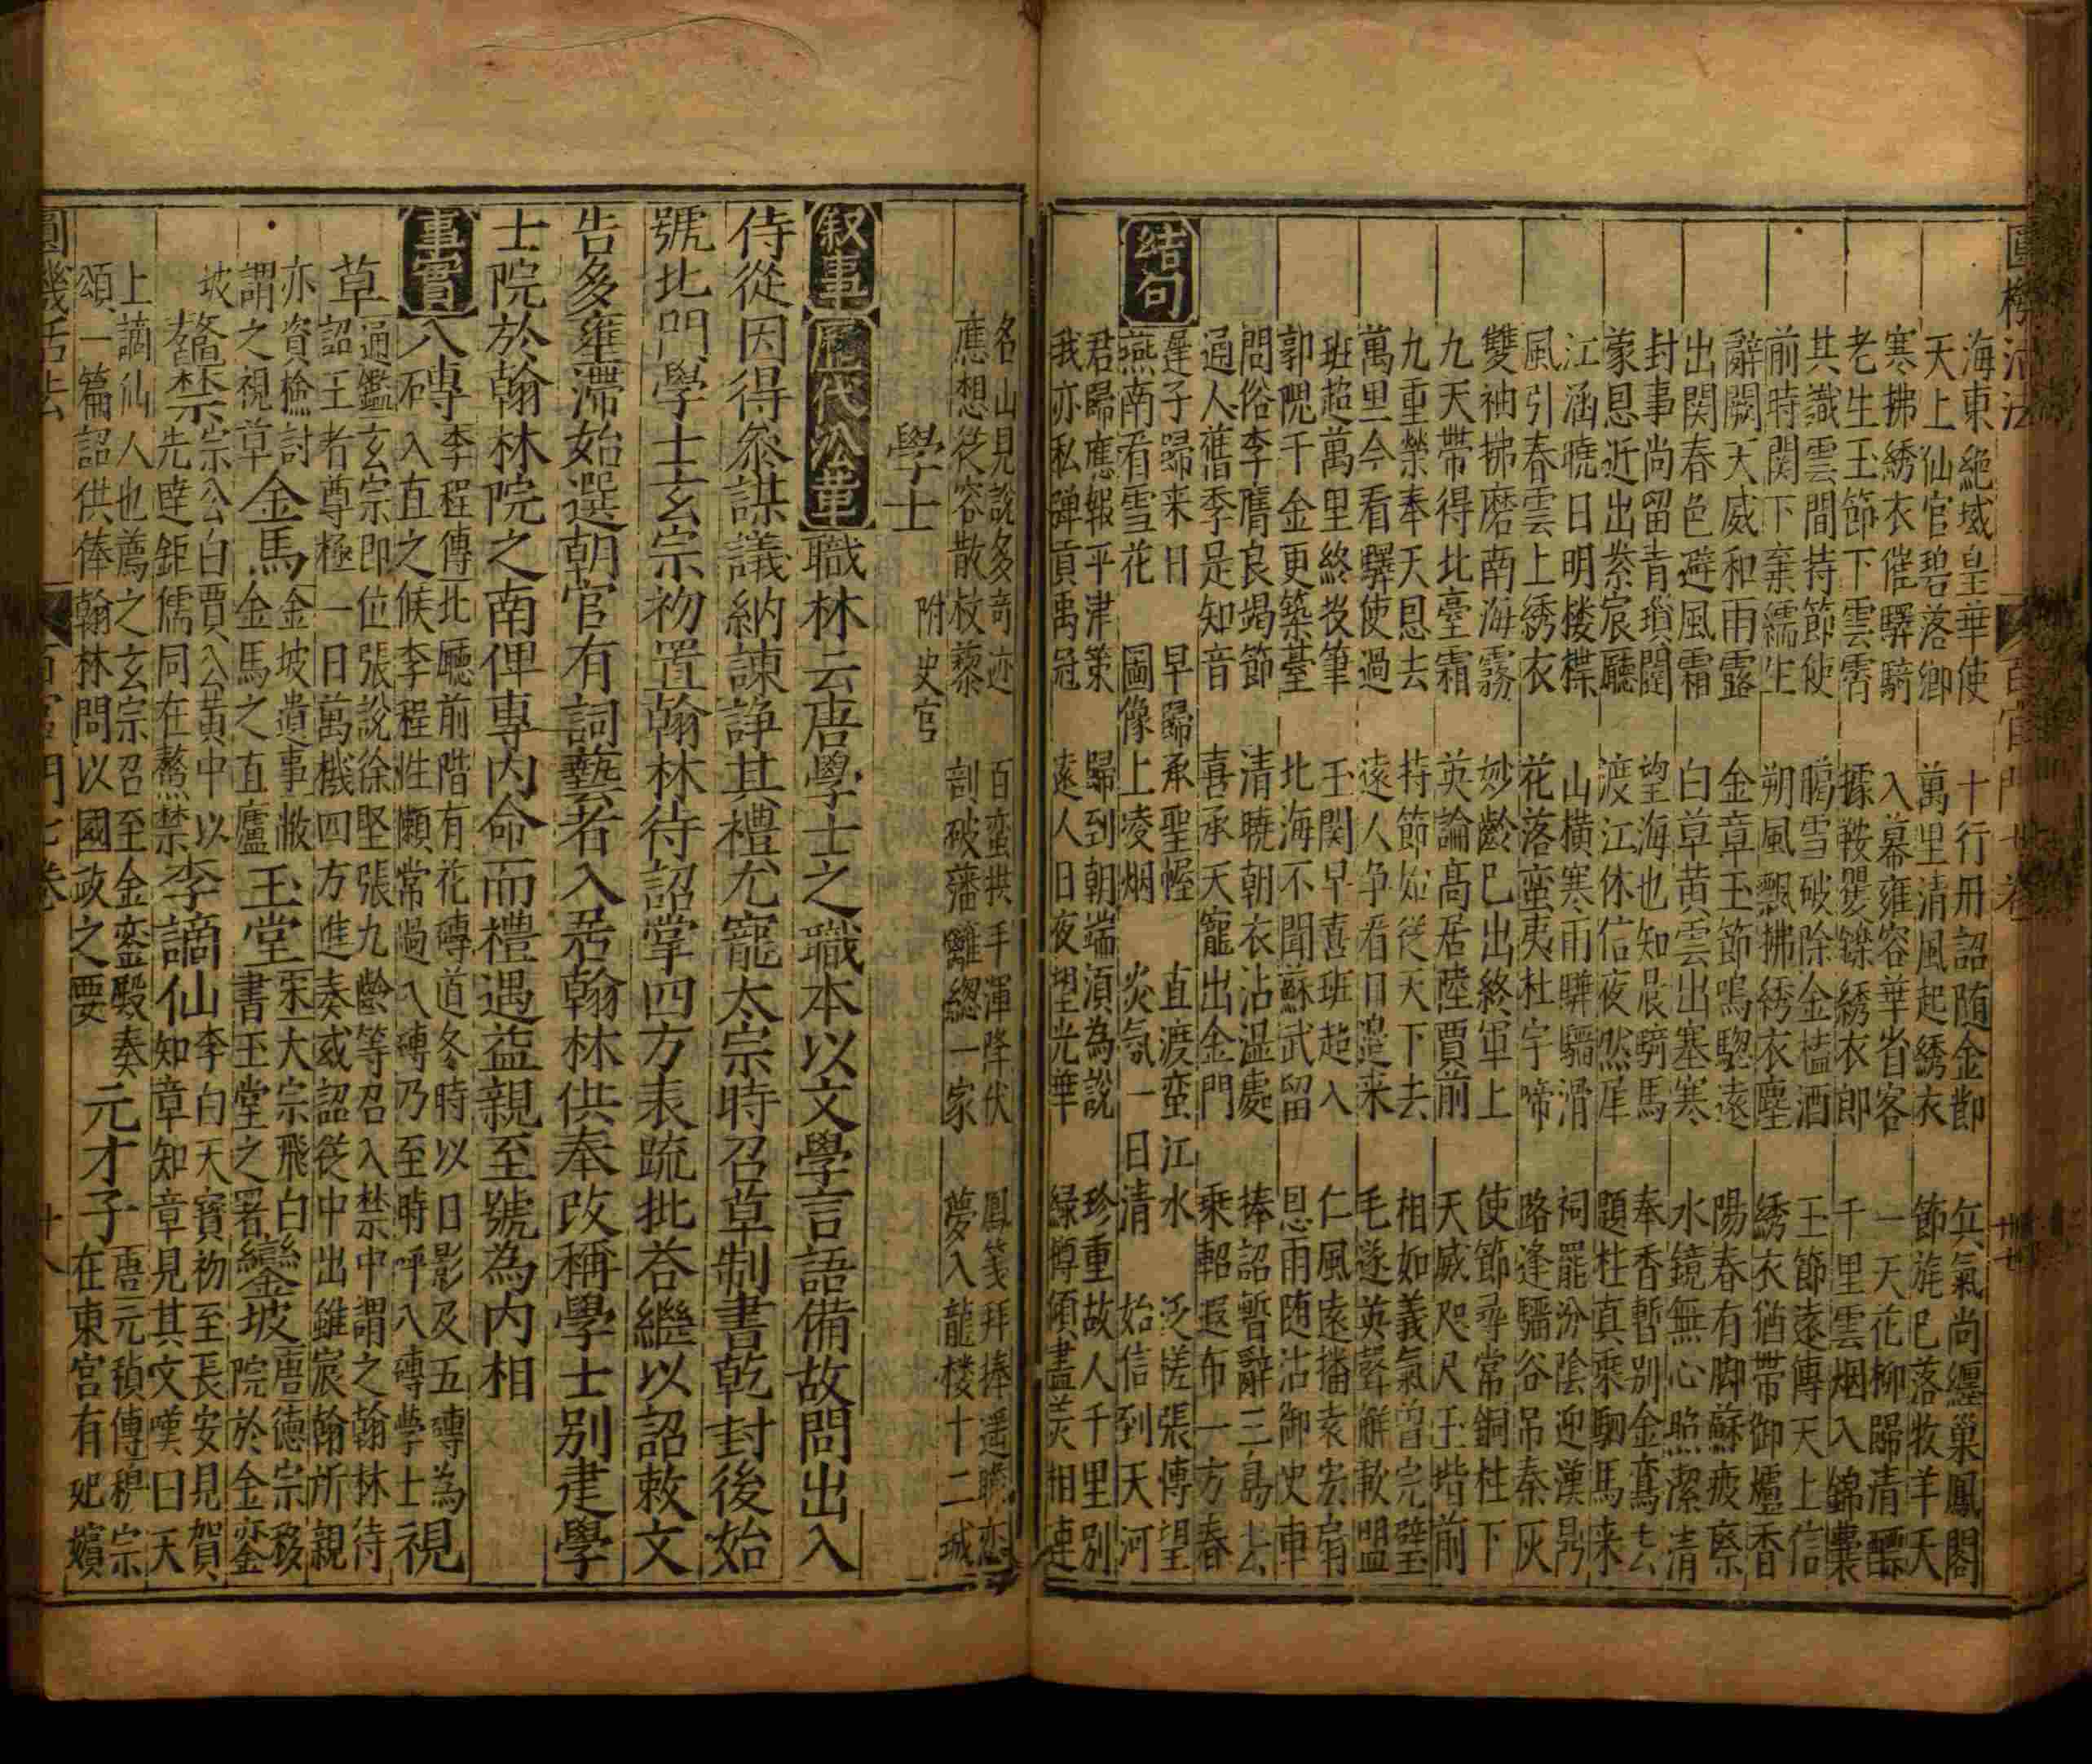 圓機活法 百官門七卷
海東絕域皇華使 十行冊詔随金節 兵氣尚纏巢鳳閣
天上仙官碧落卿 萬里清風起綉衣 節旄已落牧羊天
寒拂綉衣催驛騎 入幕雍容華省客 一天花柳歸清醥
老生玉節下雲霄 據鞍矍鑠綉衣郎 千里雲烟入錦囊
共識雲間持節使 臈雪破除金榼酒 玉節遠傳天上信
前時関下棄繻生 朔風飄拂綉衣塵 綉衣猶帶御爐香
辭闕天威和雨露 金章玉節鳴騘遠 陽春有脚蘇疲瘵
出関春色避風霜 白草黄雲出塞寒 水鏡無心照潔清
封事尚留青瑣闥 望海也知晨騎馬 奉香暫别金鳶去
蒙恩近出紫宸廳 渡江休信夜然犀 題柱真乗駟馬来
江涵曉日明楼 山横寒雨驊騮滑 祠罷汾陰迎漢鼎
風引春雲上綉衣 花落蛮夷杜宇啼 路逢驪谷吊秦灰
雙袖拂磨南海霧 妙齡已出終軍上 使節尋常銅柱下
九天帶得北臺霜 英論髙居陸賈前 天威咫尺玉堦前
九重榮奉天恩去 持節始從天下去 相如義氣曽完璧
萬里今看驛使過 遠人争看日邉来 毛遂英聲解歃盟
班超萬里終投筆 玉関早喜班超入 仁風遠播袁宏扇
郭隗千金更築臺 北海不聞蘇武留 恩雨随沾御史車
問俗李膺良竭節 清曉朝衣沾湿處 捧詔暫辭三島去
通人舊季是知音 喜承天寵出金門 乗軺遐布一方春
結句
遲子歸来日 早歸承聖幄 直渡蛮江水 泛槎張博望
燕南看雪花 圖像上凌烟 炎氛一日清 始信到天河
君歸應報平津策 歸到朝端湏為說 珍重故人千里别
我亦私彈貢禹冠 遠人日夜望光華 緑樽傾盡羙相連
名山見說多竒迹 百蛮拱手渾降伏 鳳笺拜捧遥瞻恋
應想從容散杖藜 剖破藩籬總一家 夢入龍楼十二城
學士 附史官
叙事 歷代沿革 職林云唐學士之職本以文學言語備故問出入
侍從因得叅謀議納諫諍其禮尤寵太宗時召草制書乾封後始
號北門學士玄宗初置翰林待詔掌四方表疏批荅繼以詔敕文
告多壅滯始選朝官有詞藝者入居翰林供奉改稱學士别建學
士院於翰林院之南俾專内命而禮遇益親至號為内相
事實 入磚 李程傳北廳前階有花磚道冬時以日影及五磚為
入直之候李程性懶常過八磚乃至時呼八磚學士 視
草 通鑑玄宗即位張說徐堅張九齡等召入禁中謂之翰林待
詔王者尊極一日萬機四方進奏或詔從中出雖宸翰所親
亦資檢討
謂之視草 金馬 金坡遺事敝
金馬之直廬 玉堂 宋太宗飛白
書玉堂之署 鑾坡 唐德宗移
院於金鑾
坡 鰲禁 宗公白賈公黄中以
先達鉅儒同在鰲禁 李謫仙 李白天寳初至長安見賀
知章知章見其文嘆曰天
上謫仙人也薦之玄宗召至金鑾殿奏
頌一篇詔供俸翰林問以國政之要 元才子 唐元稹傳穆宗
在東宮有妃嬪
圓機活法 百官門七卷 十八